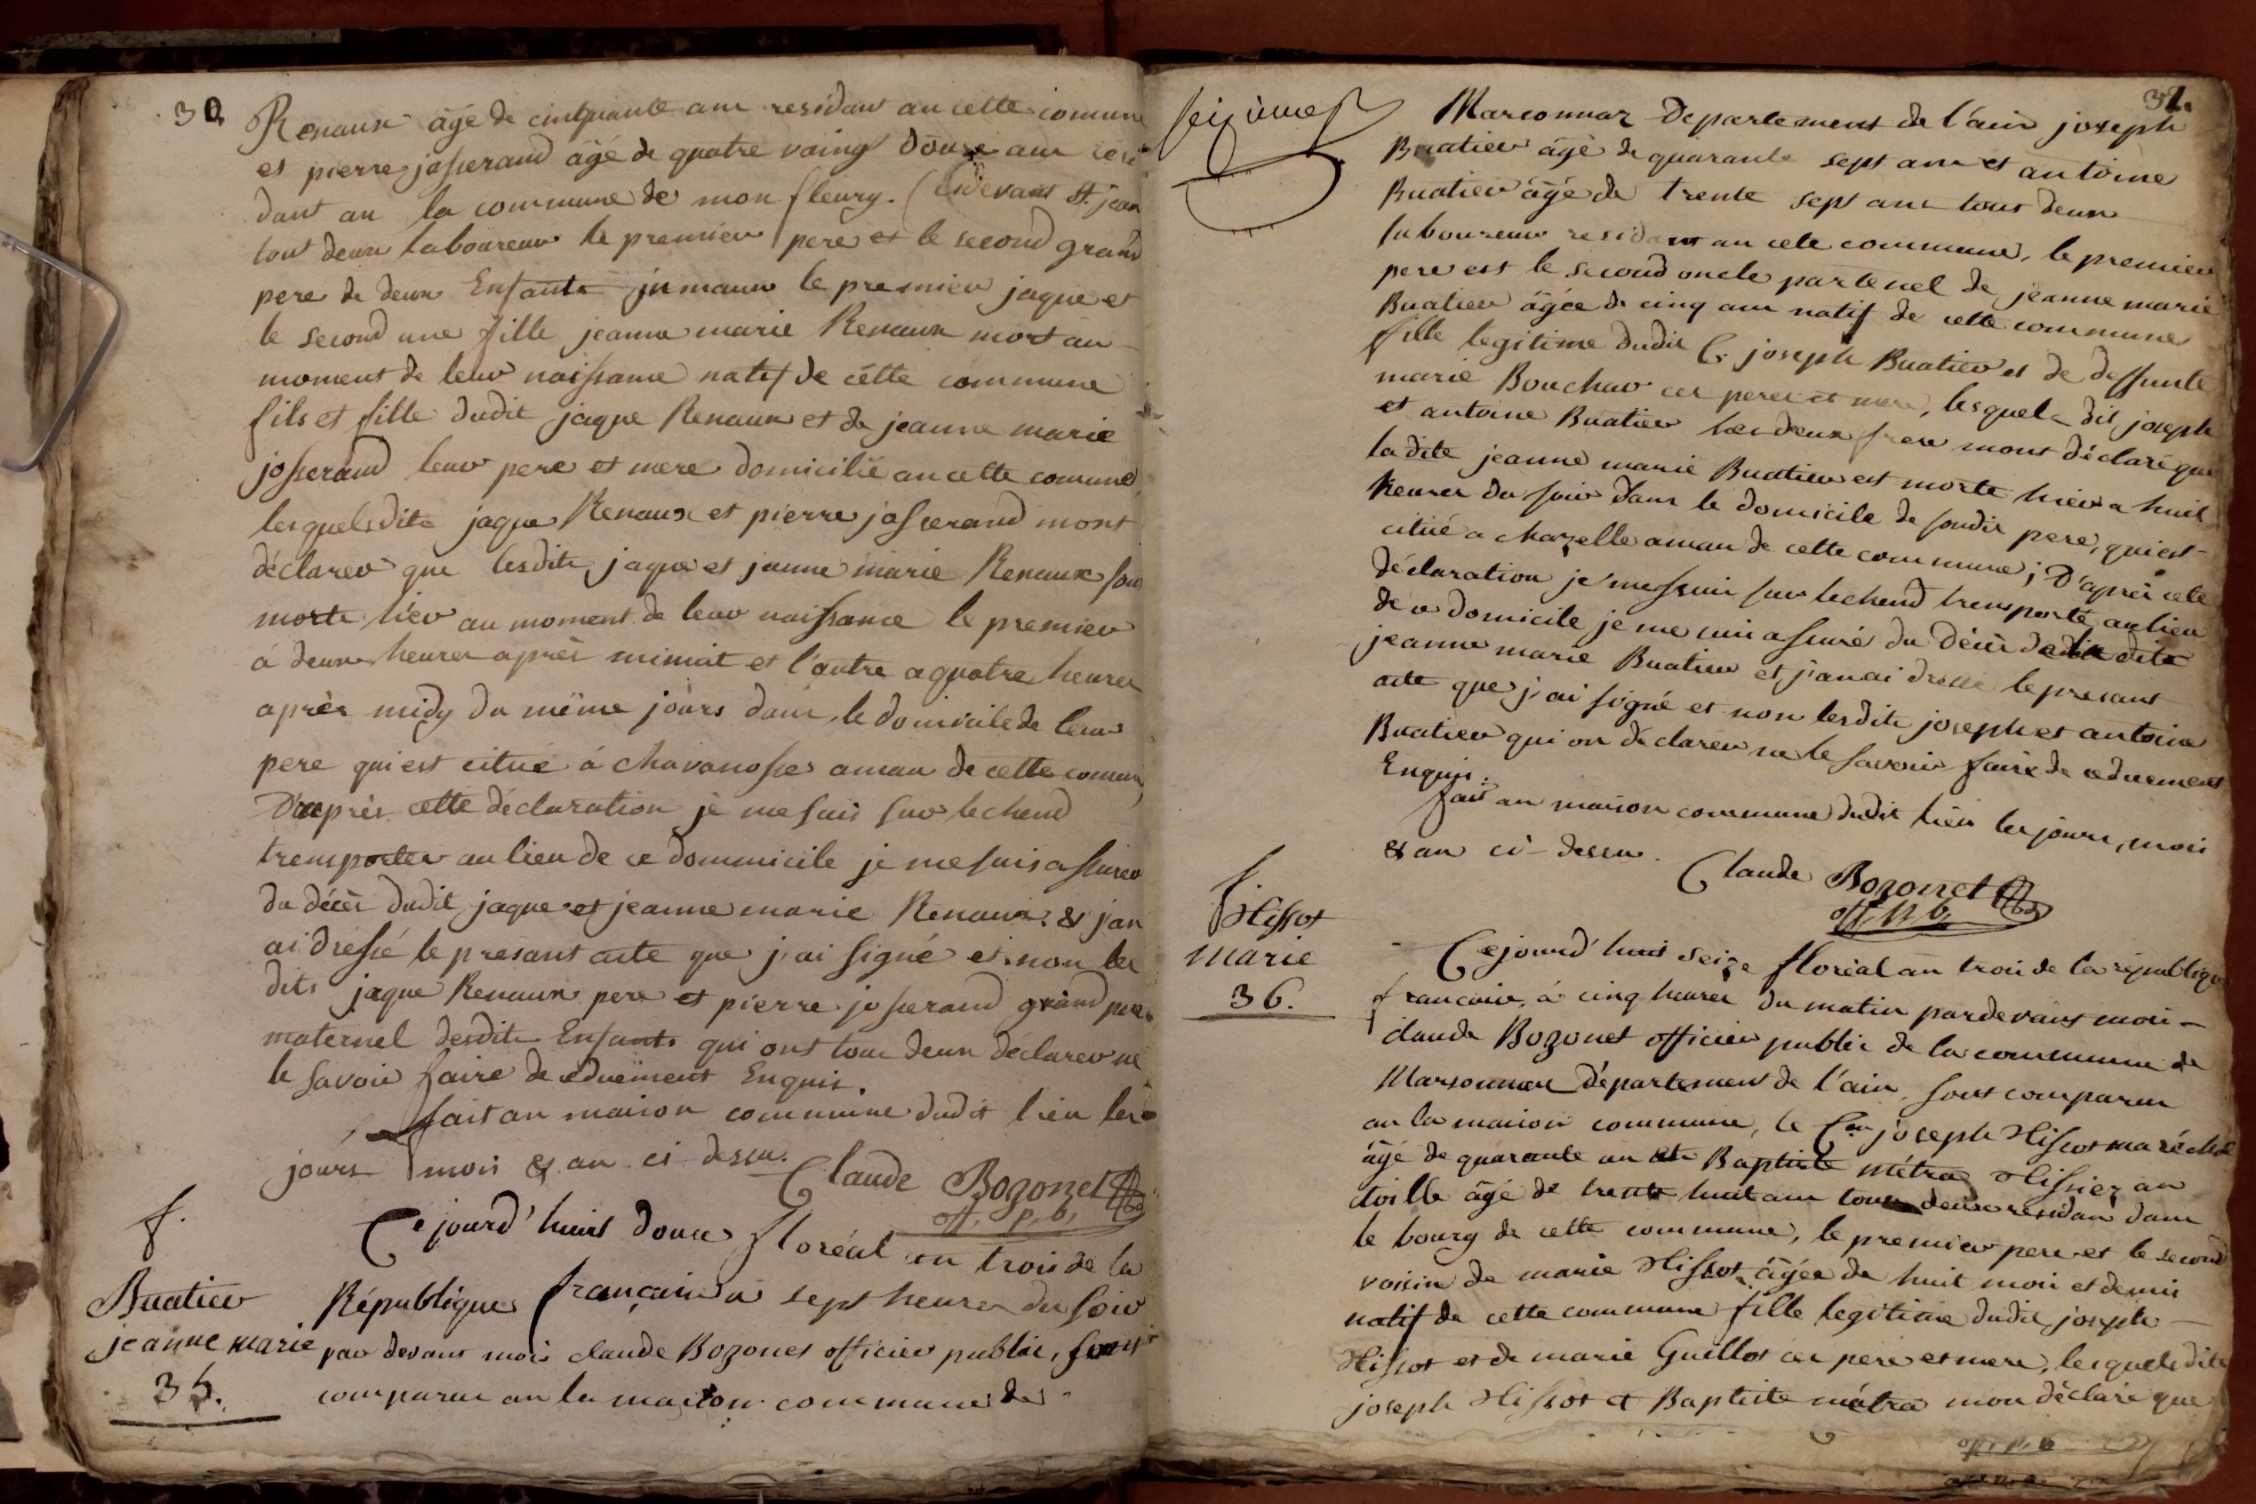 30
Renaux âgé de cinquante ans residant an cette comune
et pierre josserand âgé de quatre vaingt douze ans resi
dant an la commune de mon fleury. (cidevant St. jean
tout deux laboureur le premier pere et le second grand
pere de deux Enfants jumaux le premier jaque et
le second une fille jeanne marie Renaux mort au
moment de leur naissance natif de cétte commune
fils et fille dudit jaque Renaux et de jeanne marie
josserand leur pere et mere domicilié an cette comune,
lesquels dits jaque Renaux et pierre josserand mont
déclarer que lesdits jaque et jeanne marie Renaux son
morts hier au moment de leur naissance le premier
à deux heures après minuit et l'autre a quatre heures
après midy du même jours dans le domicile de leur
pere qui est citué à chavanosse aman de cette comune,
D'après cette déclaration je me suis sur le chend
tremporter au lieu de ce dommicile je me suis assurer
du décès dudit jaque et jeanne marie Renaux & j'an
ai dressé le présant acte que j'ai signé et non les
dits jaque Renaux pere et pierre josserand grand pere
maternel desdits Enfants qui ont tous deux déclarer ne
le savoir faire de ceduement Enquis.
fait an maison commune dudit lieu les
jours mois & an ci dessu.
Claude Bozonet
off. p. b.
f.
Buatier
jeanne marie
35.
Cejourd'huit douze floréal an trois de la
République française a sept heures du soir
par devant moi claude Bozonet officier public, sont
comparue an la maison commune de
31.
seizieme
Marsonnaz Departement de l'ain joseph
Buatier âgé de quarante sept ans et antoine
Buatier âgé de trente sept ans tous deux
laboureur residant an cete commune, le premier
pere est le second oncle parternel de jeanne marie
Buatier âgée de cinq ans natif de cette commune
fille legitime dudit C. joseph Buatier et de deffunte
marie Bouchar ces pere et mere, lesquels dit joseph
et antoine Buatier les deux frere mont déclaré que
ladite jeanne marie Buatier est morte hier a huit
heures du soir dans le domicile de sondit pere, qui est
citué a chazelle aman de cette commune; D'après cete
déclaration je me suis sur le chend tremporté au lieu
de ce domicile je me suis assuré du décès de ladite
jeanne marie Buatier et j'an ai dressé le presant
acte que j'ai signé et non lesdits joseph et antoine
Buatier qui on déclarer ne le savoir faire de ceduement
Enquis.
fait an maison commune dudit lieu les jours, mois
& an ci-dessu.
Claude Bozonet
off. p. b.
f.
Hissot
marie
36.
Cejourd'huit seize floréal an trois de la république
francaise, à cinq heures du matin pardevant moi
claude Bozonet officier public de la commune de
Marsonnaz Département de l'ain, sont comparue
an la maison commune, le Cen. joseph Hissot maréchal
âgé de quarante an et Baptiste métra Hissiez an
toille âgé de trente huit ans tous deux residan dans
le bourg de cette commune, le premier pere et le second
voisin de marie Hissot âgée de huit mois et demis
natif de cette commune fille legitime dudit joseph
Hissot et de marie Guillot ces pere et mere, lesquels dits
joseph Hissot et Baptiste métra mon déclaré que
off. p. b.